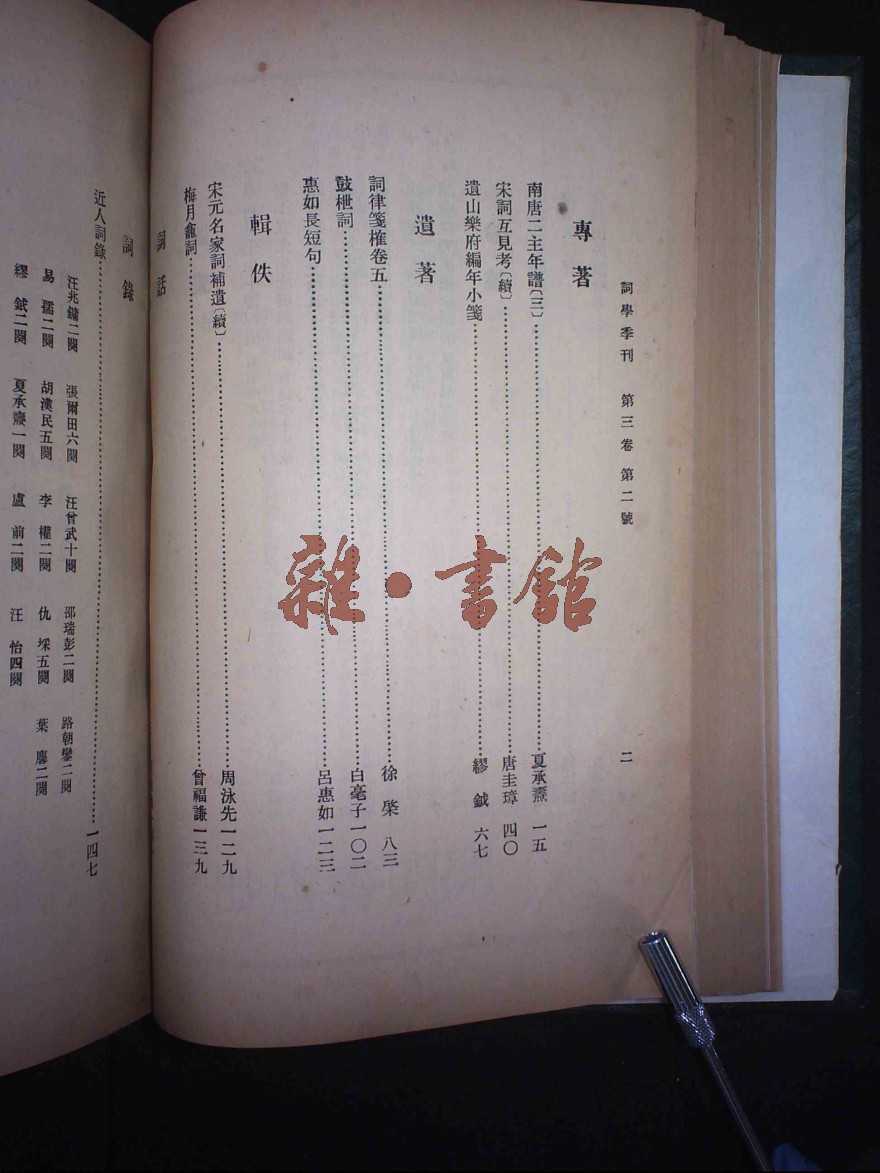 詞學季刊 第三卷 第二號 二
專著
南唐二主年譜〔三〕 夏承燾 一五
宋詞互見考〔續〕 唐圭璋 四〇
遺山樂府編年小箋 繆鉞 六七
遺著
詞律箋榷卷五 徐棨 八三
鼓枻詞 白毫子 一〇二
惠如長短句 呂惠如 一二三
輯佚
宋元名家詞補遺〔續〕 周泳先 一二九
梅月龕詞 曾福謙 一三九
詞話
詞錄
近人詞錄 一四七
汪兆鏞二闋 張爾田六闋 汪曾武十闋 邵瑞彭二闋 路朝鑾二闋
易孺二闋 胡漢民五闋 李權二闋 仇埰五闋 葉麐二闋
繆鉞二闋 夏承燾一闋 盧前二闋 汪怡四闋
雜·書館